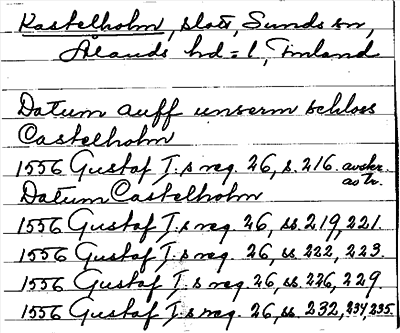 Kastelholm, slott, Sunds sn,
Ålands hd = l, Finland
Datum auff unserm schloss
Castelholm
1556 Gustaf I:s reg. 26, s. 216. avskr.
Datum Castelholm
1556 Gustaf I:s reg. 26, ss. 219, 221.
1556 Gustaf I:s reg. 26, ss. 222, 223.
1556 Gustaf I:s reg. 26, ss. 226, 229.
1556 Gustaf I:s reg. 26, ss. 232, 234, 235.